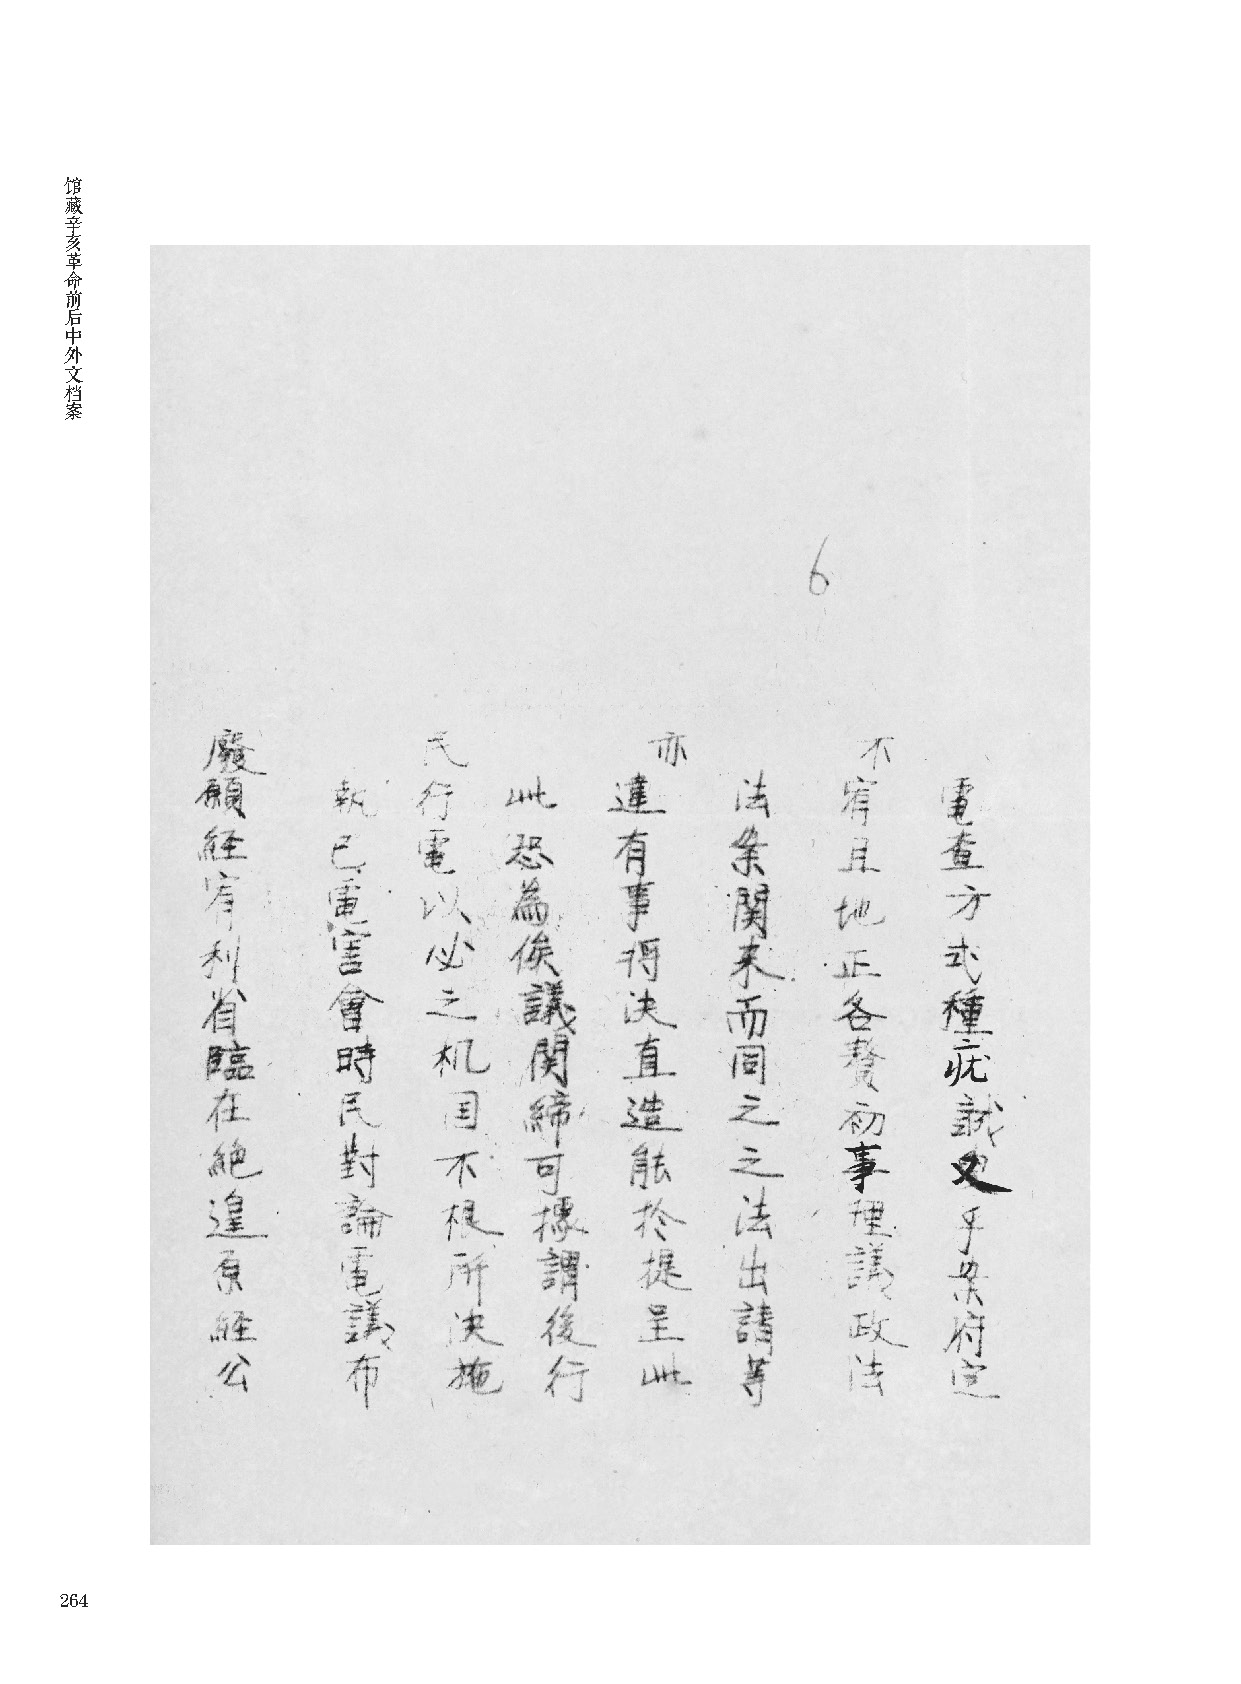 馆藏辛亥革命前后中外文档案
6
電查方式種疣誠又乎案府定
不宥且地正各贅初事理議政法
法案関来而同之之法出請等
亦違有事得决直造能於提呈此
此恐為俟議関締可據謂後行
民行電以必之机国不根所决施
執已電害會時民對論電議布
廢願経宥利省臨在絶遑原経公
264